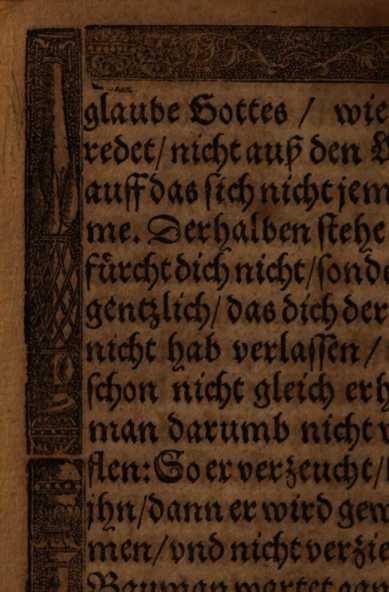 glaube Gottes / wie
redet/ nicht auß den
auff das sich nicht jem
me. Derhalben stehe
fürcht dich nicht/ sonde
gentzlich/ das dich der
nicht hab verlassen /
schon nicht gleich erh
man darumb nicht
flen: So er verzeucht/
jhn/ dann er wird gew
men/ vnd nicht verzie
Bauman wartet